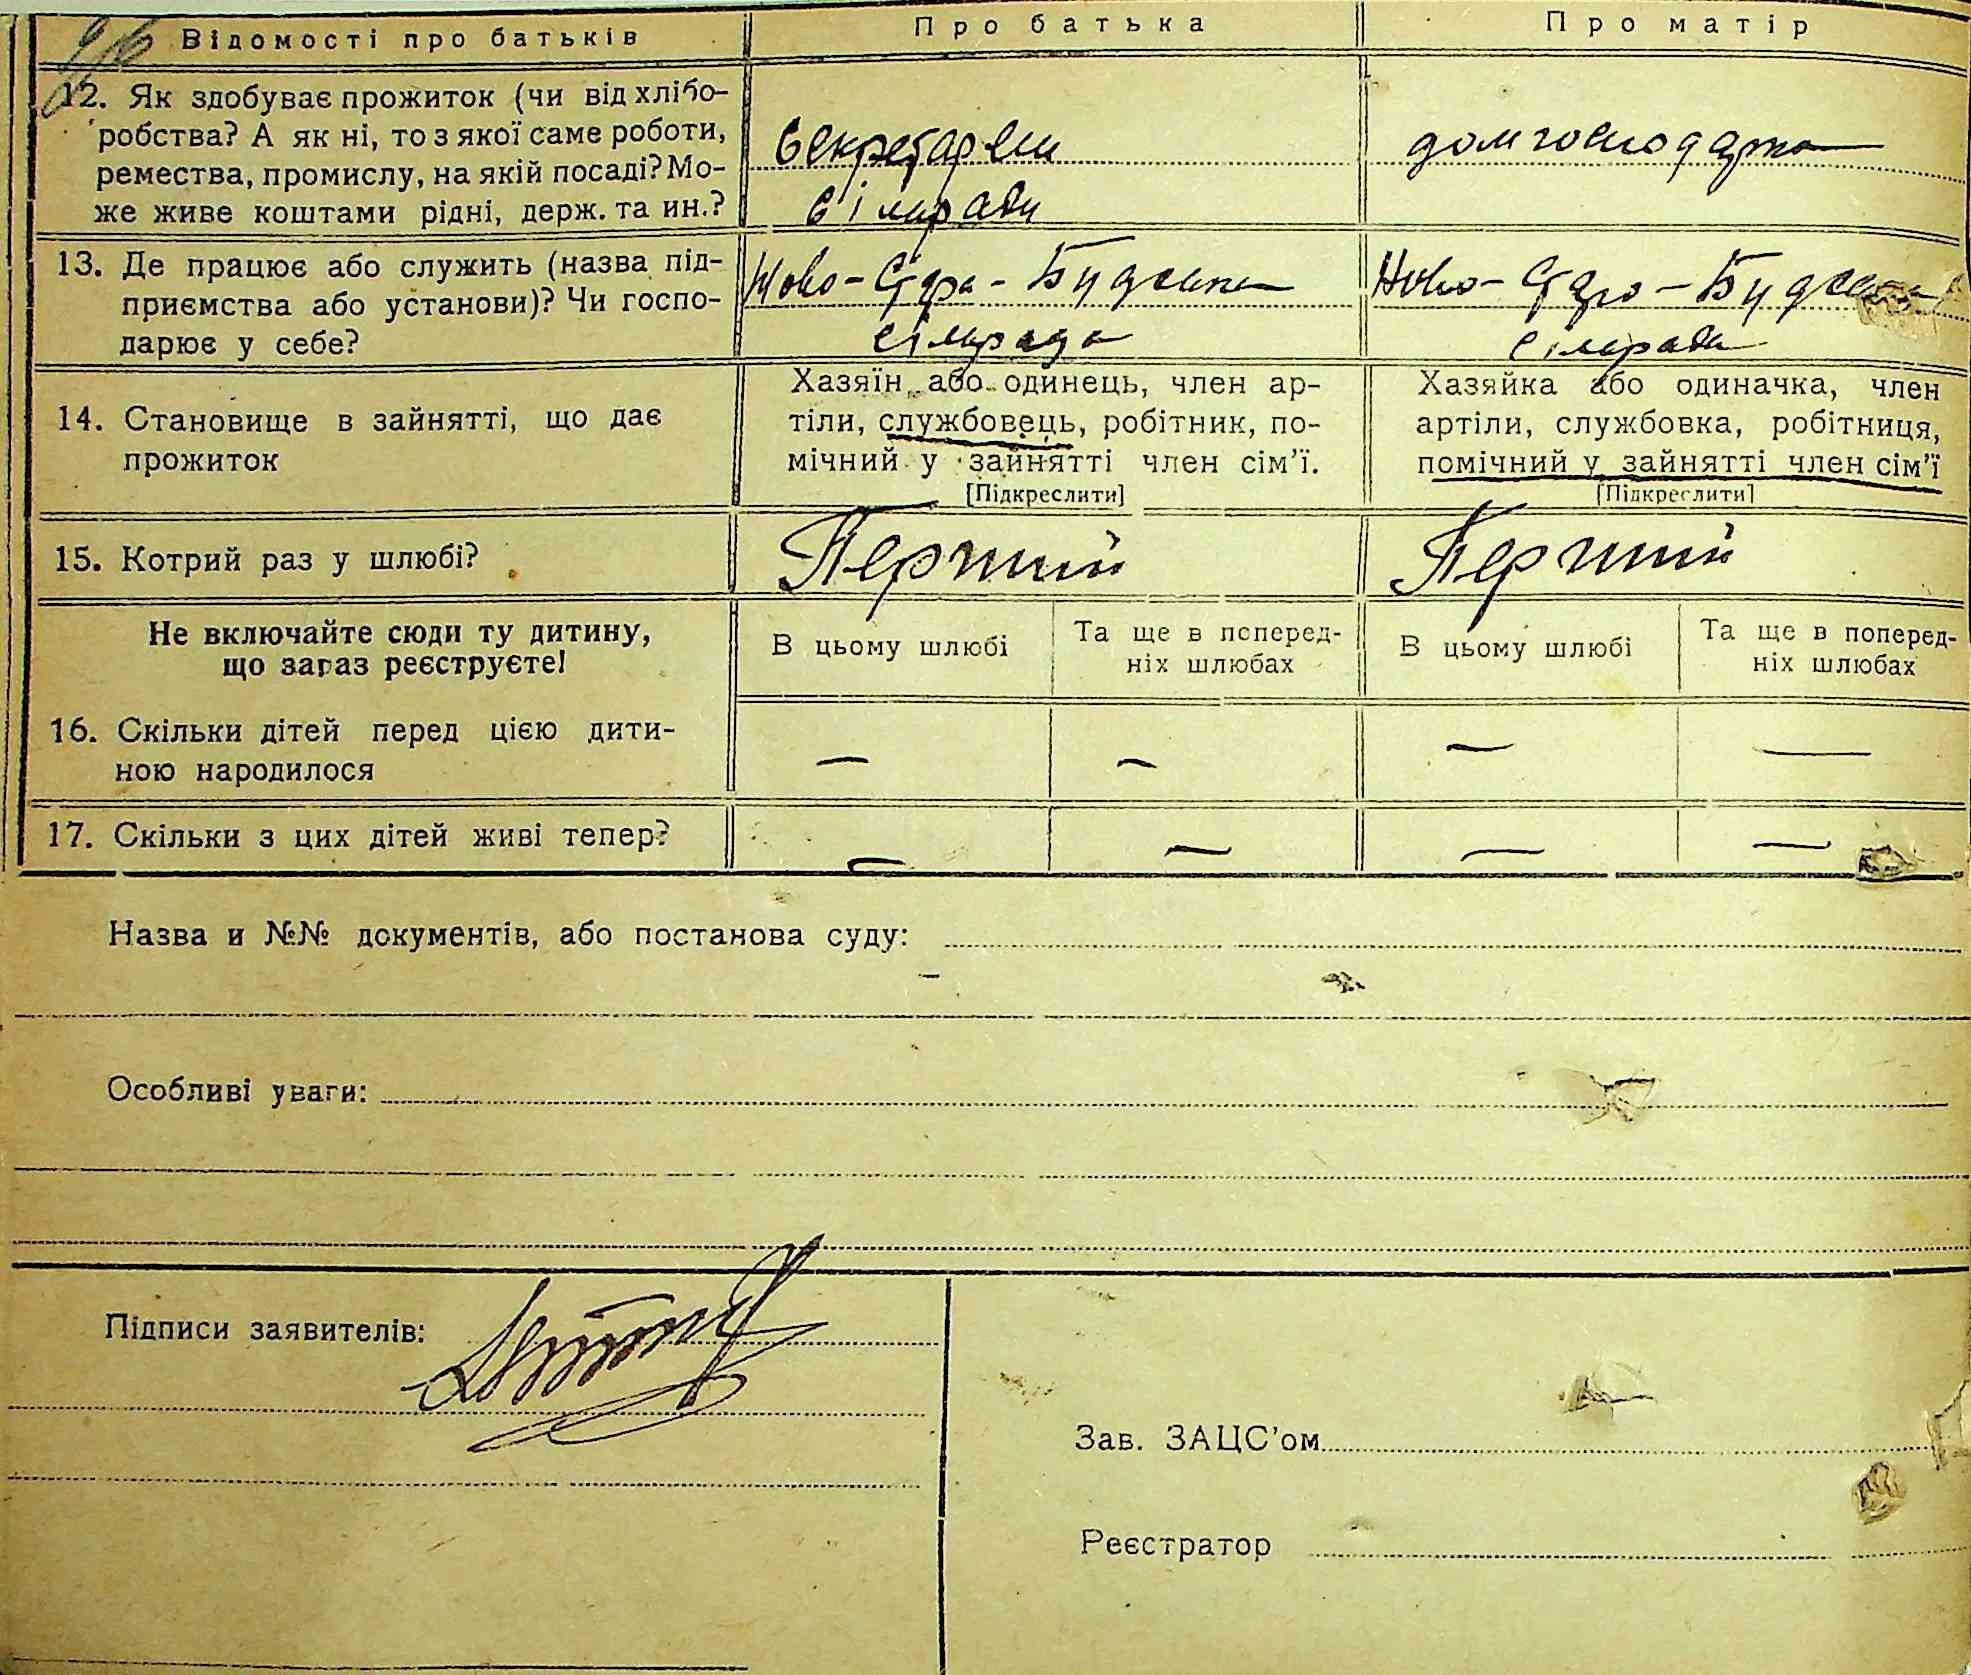 Відомості про батьків
Про батька
Про матір
12. Як здобуває прожиток (чи від хлібо-
робства? А як ні, то з якої саме роботи,
ремества, промислу, на якій посаді? Мо-
же живе коштами рідні, держ. та ин.?
Секретарем
сільради
домгосподарка
13. Де працює або служить (назва під-
приємства або установи)? Чи госпо-
дарює у себе?
Ново-
сільрада
Ново-
сільрада
14. Становище в зайнятті, що дає
прожиток
Хазяїн або одинець, член ар-
тіли, службовець, робітник, по-
мічний у зайнятті член сім'ї.
[Підкреслити]
Хазяйка або одиначка, член
артіли, службовка, робітниця,
помічний у зайнятті член сім'ї
[Підкреслити]
15. Котрий раз у шлюбі?
Перший
Перший
Не включайте сюди ту дитину,
що зараз реєструєте!
В цьому шлюбі
Та ще в поперед-
ніх шлюбах
В цьому шлюбі
Та ще в поперед-
ніх шлюбах
16. Скільки дітей перед цією дити-
ною народилося
— — — —
17. Скільки з цих дітей живі тепер?
— — — —
Назва и №№ документів, або постанова суду:
Особливі уваги:
Підписи заявителів:
Зав. ЗАЦС'ом
Реєстратор